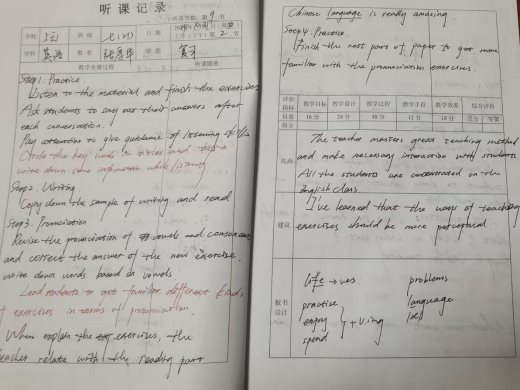 听课记录
听课节数：第9节
学校 班级 七(1) 日期
上午(下午)第2节
学科 英语 姓名 课题 复习
教学主要过程 听课随感
Step1. Practice
Listen to the material and finish the exercises
Ask students to say out their answers after
each conversation.
Pay attention to give guidance of listening skills
Circle the key words in and
write down some information while listening
Step2. Writing
Copy down the sample of writing and read
Step3. Pronunciation
Revise the pronunciation of vowels and consonants
and correct the answer of the new exercise.
write down words based on vowels
Lead students to get familiar different kinds
of exercises in terms of pronunciation.
When explain the exercises, the
teacher relate with the reading part
Chinese language is really amazing
Step4. Practice.
finish the rest part of paper to get more
familiar with the pronunciation exercises.
评价指标 教学目标 教学设计 教学过程 教学手段 教学效果 综合评价
权重 16分 24分 30分 12分 18分 总分 等第
得分
亮点
The teacher masters great teaching method
and make necessary interaction with students
All the students are concentrated on the
English class
建议
I've learned that the ways of teaching
exercises should be more perceptual
板书设计
life → ves problems
practise language
enjoy } + V.ing
spend